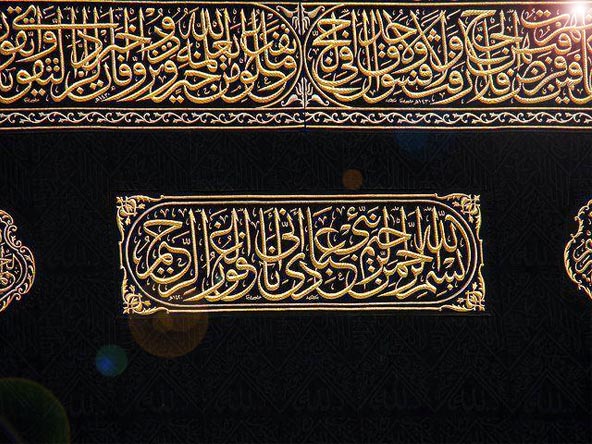 فرض فيهن الحج فلا رفث ولا فسوق ولا جدال في الحج وما تفعلوا من خير يعلمه الله وتزودوا فإن خير الزاد التقوى واتقون
بسم الله الرحمن الرحيم نبئ عبادي أني أنا الغفور الرحيم